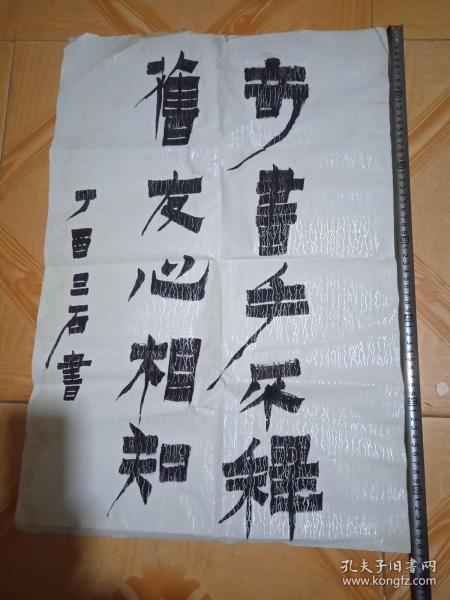 奇書手不釋
舊友心相知
丁酉三石書
孔夫子旧书网
www.kongfz.com